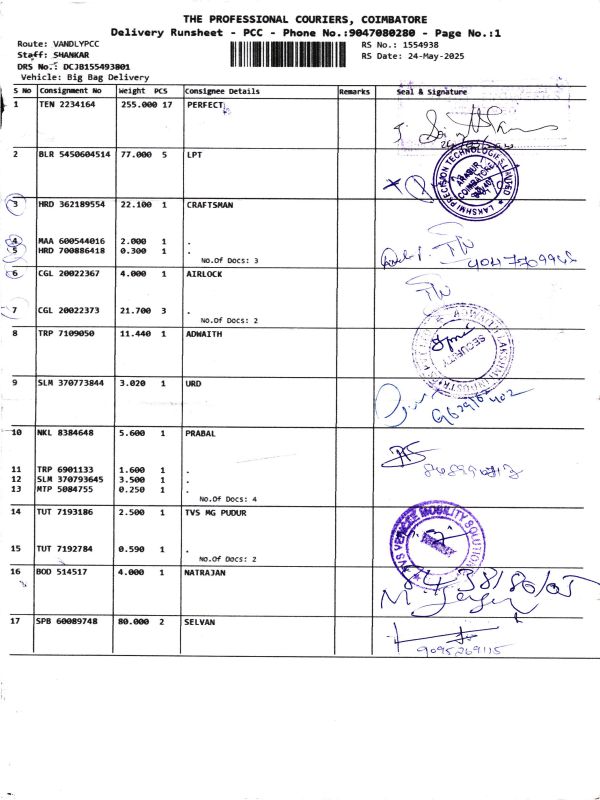 THE PROFESSIONAL COURIERS, COIMBATORE
Delivery Runsheet - PCC - Phone No.:9047080280 - Page No.:1
Route: VANDLYPCC
Staff: SHANKAR
DRS No.: DCJB155493801
Vehicle: Big Bag Delivery
RS No.: 1554938
RS Date: 24-May-2025
S No Consignment No Weight PCS Consignee Details Remarks Seal & Signature
1 TEN 2234164 255.000 17 PERFECT
2 BLR 5450604514 77.000 5 LPT
LAKSHMI PRECISION TECHNOLOGIES LIMITED
ARASUR
COIMBATORE
3 HRD 362189554 22.100 1 CRAFTSMAN
4 MAA 600544016 2.000 1 .
5 HRD 700886418 0.300 1 .
No.Of Docs: 3
6 CGL 20022367 4.000 1 AIRLOCK
7 CGL 20022373 21.700 3 .
No.Of Docs: 2
8 TRP 7109050 11.440 1 ADWAITH
SECURITY
9 SLM 370773844 3.020 1 URD
10 NKL 8384648 5.600 1 PRABAL
11 TRP 6901133 1.600 1 .
12 SLM 370793645 3.500 1 .
13 MTP 5084755 0.250 1 .
No.Of Docs: 4
14 TUT 7193186 2.500 1 TVS MG PUDUR
15 TUT 7192784 0.590 1 .
No.Of Docs: 2
16 BOD 514517 4.000 1 NATRAJAN
17 SPB 60089748 80.000 2 SELVAN
9095269115